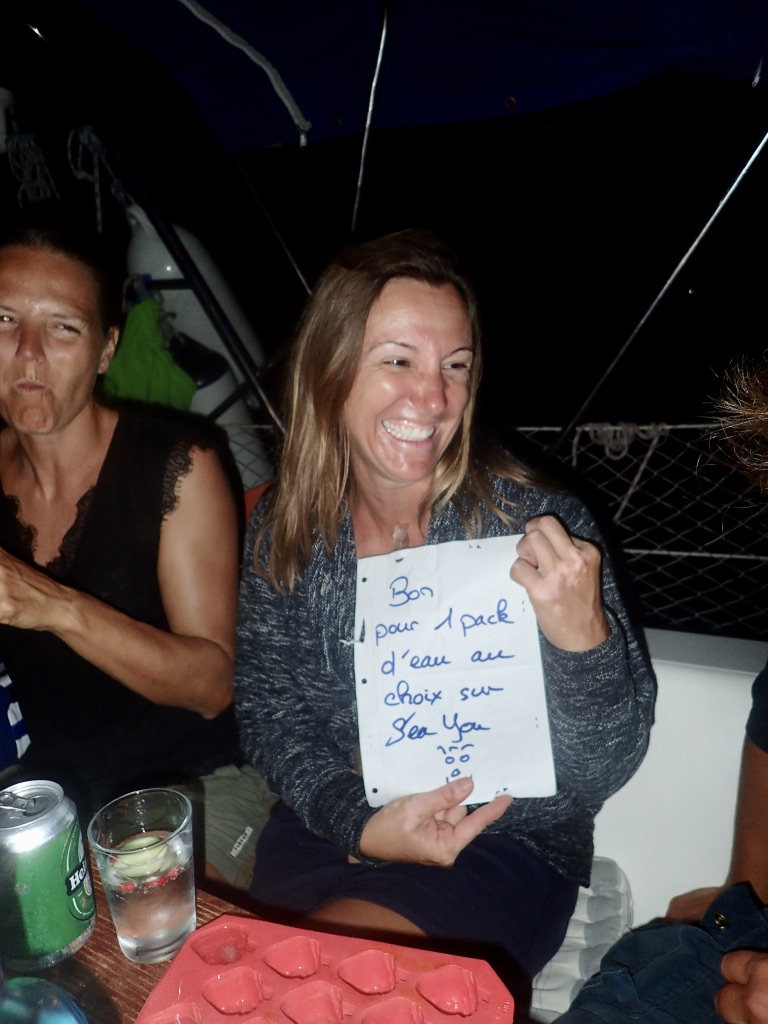 Bon
pour 1 pack
d'eau au
choix sur
Sea You